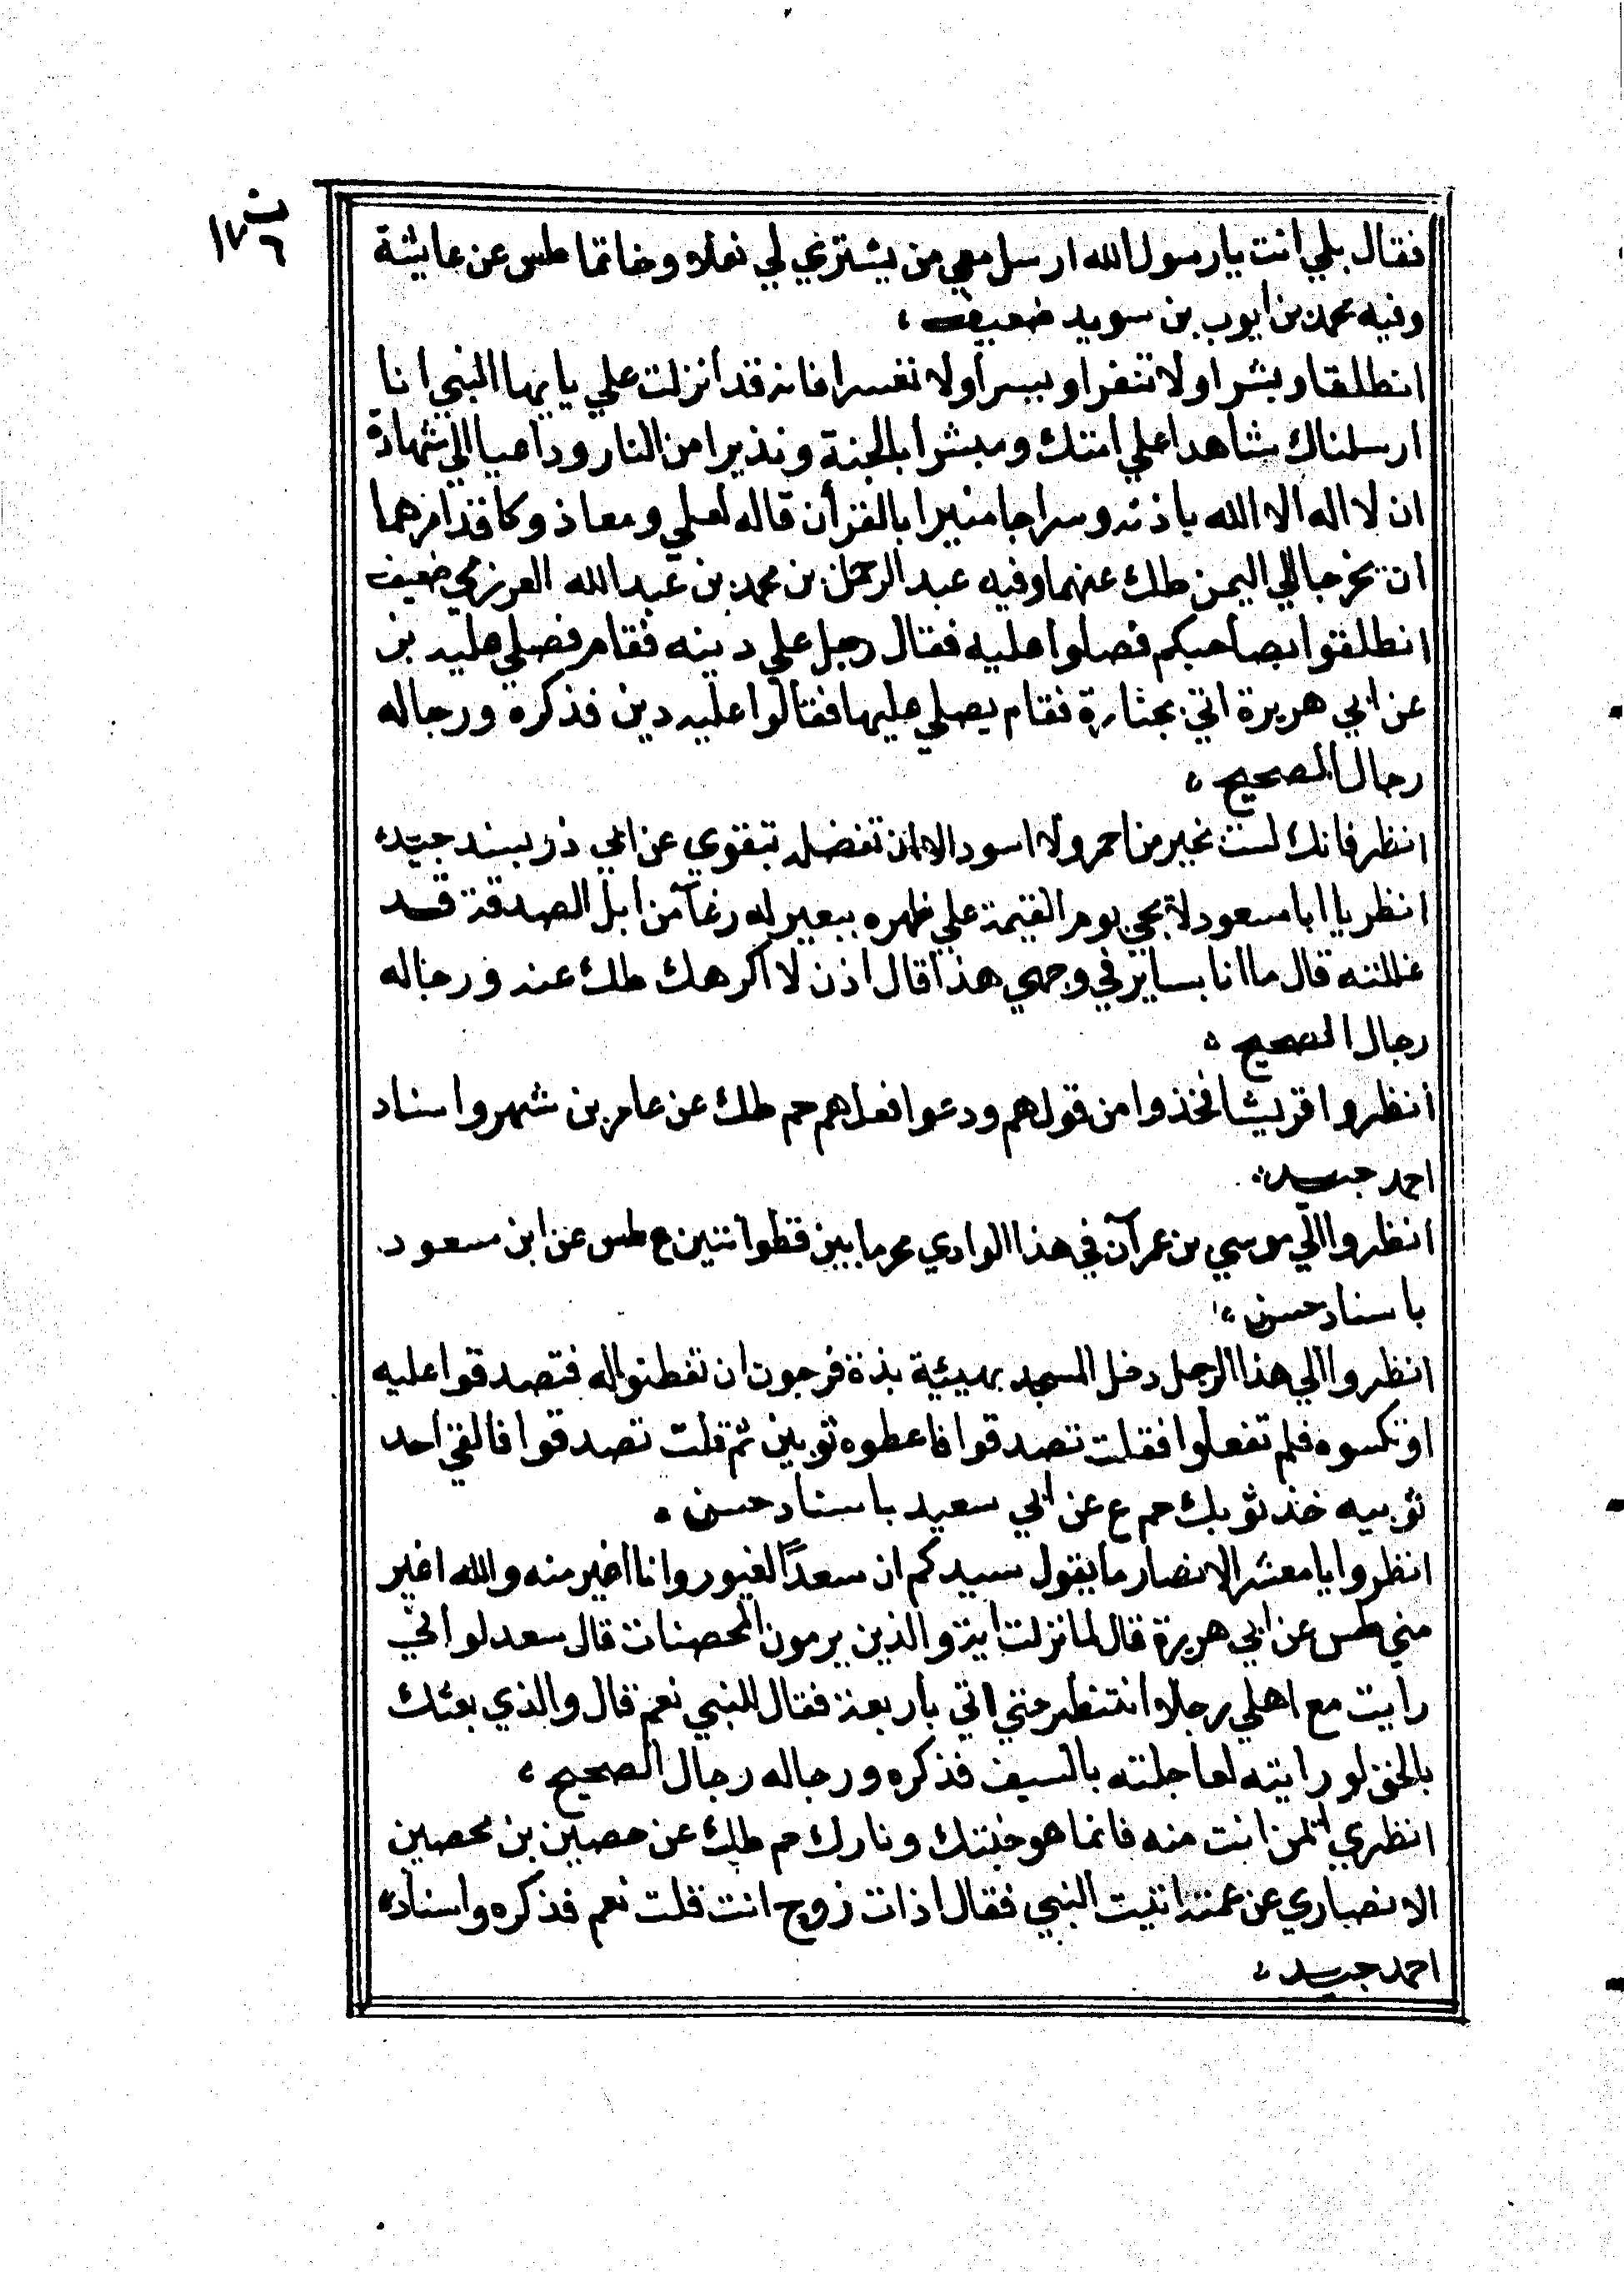 ١٧٦
فقال بلي انت يا رسول الله ارسل معي من يشتري لي نعلا وخاتما طس عن عايشة
وفيه محمد بن ايوب بن سويد ضعيف
انطلقا وبشرا ولا تنفرا ويسرا ولا تعسرا فانه قد انزلت علي يا يها النبي انا
ارسلناك شاهدا علي امتك ومبشرا بالجنة ونذيرا من النار وداعيا الي شهادة
ان لا اله الا الله باذنه وسراجا منيرا بالقرأن قاله لعلي ومعاذ وكا قد امرهما
ان يخرجا الي اليمن طك عنهما وفيه عبد الرحمن بن محمد بن عبد الله العرزمي ضعيف
انطلقوا بصاحبكم فصلوا عليه فقال رجل علي دينه فقام فصلي عليه بز
عن ابي هريرة اتي بجنازة فقام يصلي عليها فقالوا عليه دين فذكره ورجاله
رجال الصحيح
انظر فانك لست بخير من احمر ولا اسود الا ان تفضله بتقوي عن ابي ذر بسند جيد
انظر يا ابا مسعود لا تجي يوم القيمة علي ظهره ببعير له رغآ من ابل الصدقة قد
غللته قال ما انا بساير في وجهي هذا قال اذن لا اكرهك طك عنه ورجاله
رجال الصحيح
انظروا قريشا فخذوا من قولهم ودعوا فعلهم حم طك عن عامر بن شهر واسناد
احمد جيد
انظروا الي موسي بن عمرآن في هذا الوادي محرما بين قطوانتين ع طس عن ابن مسعود
باسناد حسن
انظروا الي هذا الرجل دخل المسجد بهيئية بذة فرجون ان تفطنوا له فتصدقوا عليه
او تكسوه فلم تفعلوا فقلت تصدقوا فاعطوه ثوبين ثم قلت تصدقوا فالقي احد
ثوبيه خذ ثوبك حم ع عن ابي سعيد باسناد حسن
انظروا يا معشر الانصار ما يقول سيدكم ان سعدًا لغيور وانا اغير منه والله اغير
مني طس عن ابي هريرة قال لما نزلت اية والذين يرمون المحصنات قال سعد لو اني
رايت مع اهلي رجلا انتظر حتي اتي باربعة فقال النبي نعم قال والذي بعثك
بالحق لو رايته لعاجلته بالسيف فذكره ورجاله رجال الصحيح
انظري اين انت منه فانما هو جنتك ونارك حم طك عن حصين بن محصين
الانصاري عن عمته اتيت النبي فقال اذات زوج انت قلت نعم فذكره واسناد
احمد جيد